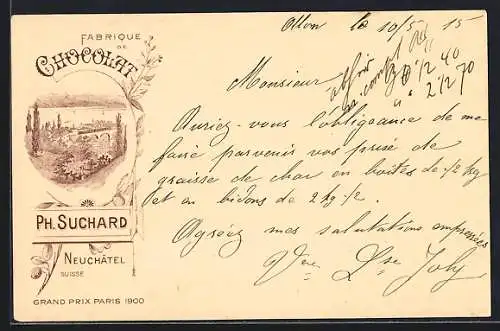 FABRIQUE
DE
CHOCOLAT
PH. SUCHARD
NEUCHÂTEL
SUISSE
GRAND PRIX PARIS 1900
Ollon le 10/5 15
Monsieur
1/2 40
2 1/2 70
Auriez-vous l'obligeance de me
faire parvenir vos prix de
graisse de char en boites de 1/2 kg
et en bidons de 2 kg 1/2.
Agréez mes salutations empressées
Vve Lse Joly